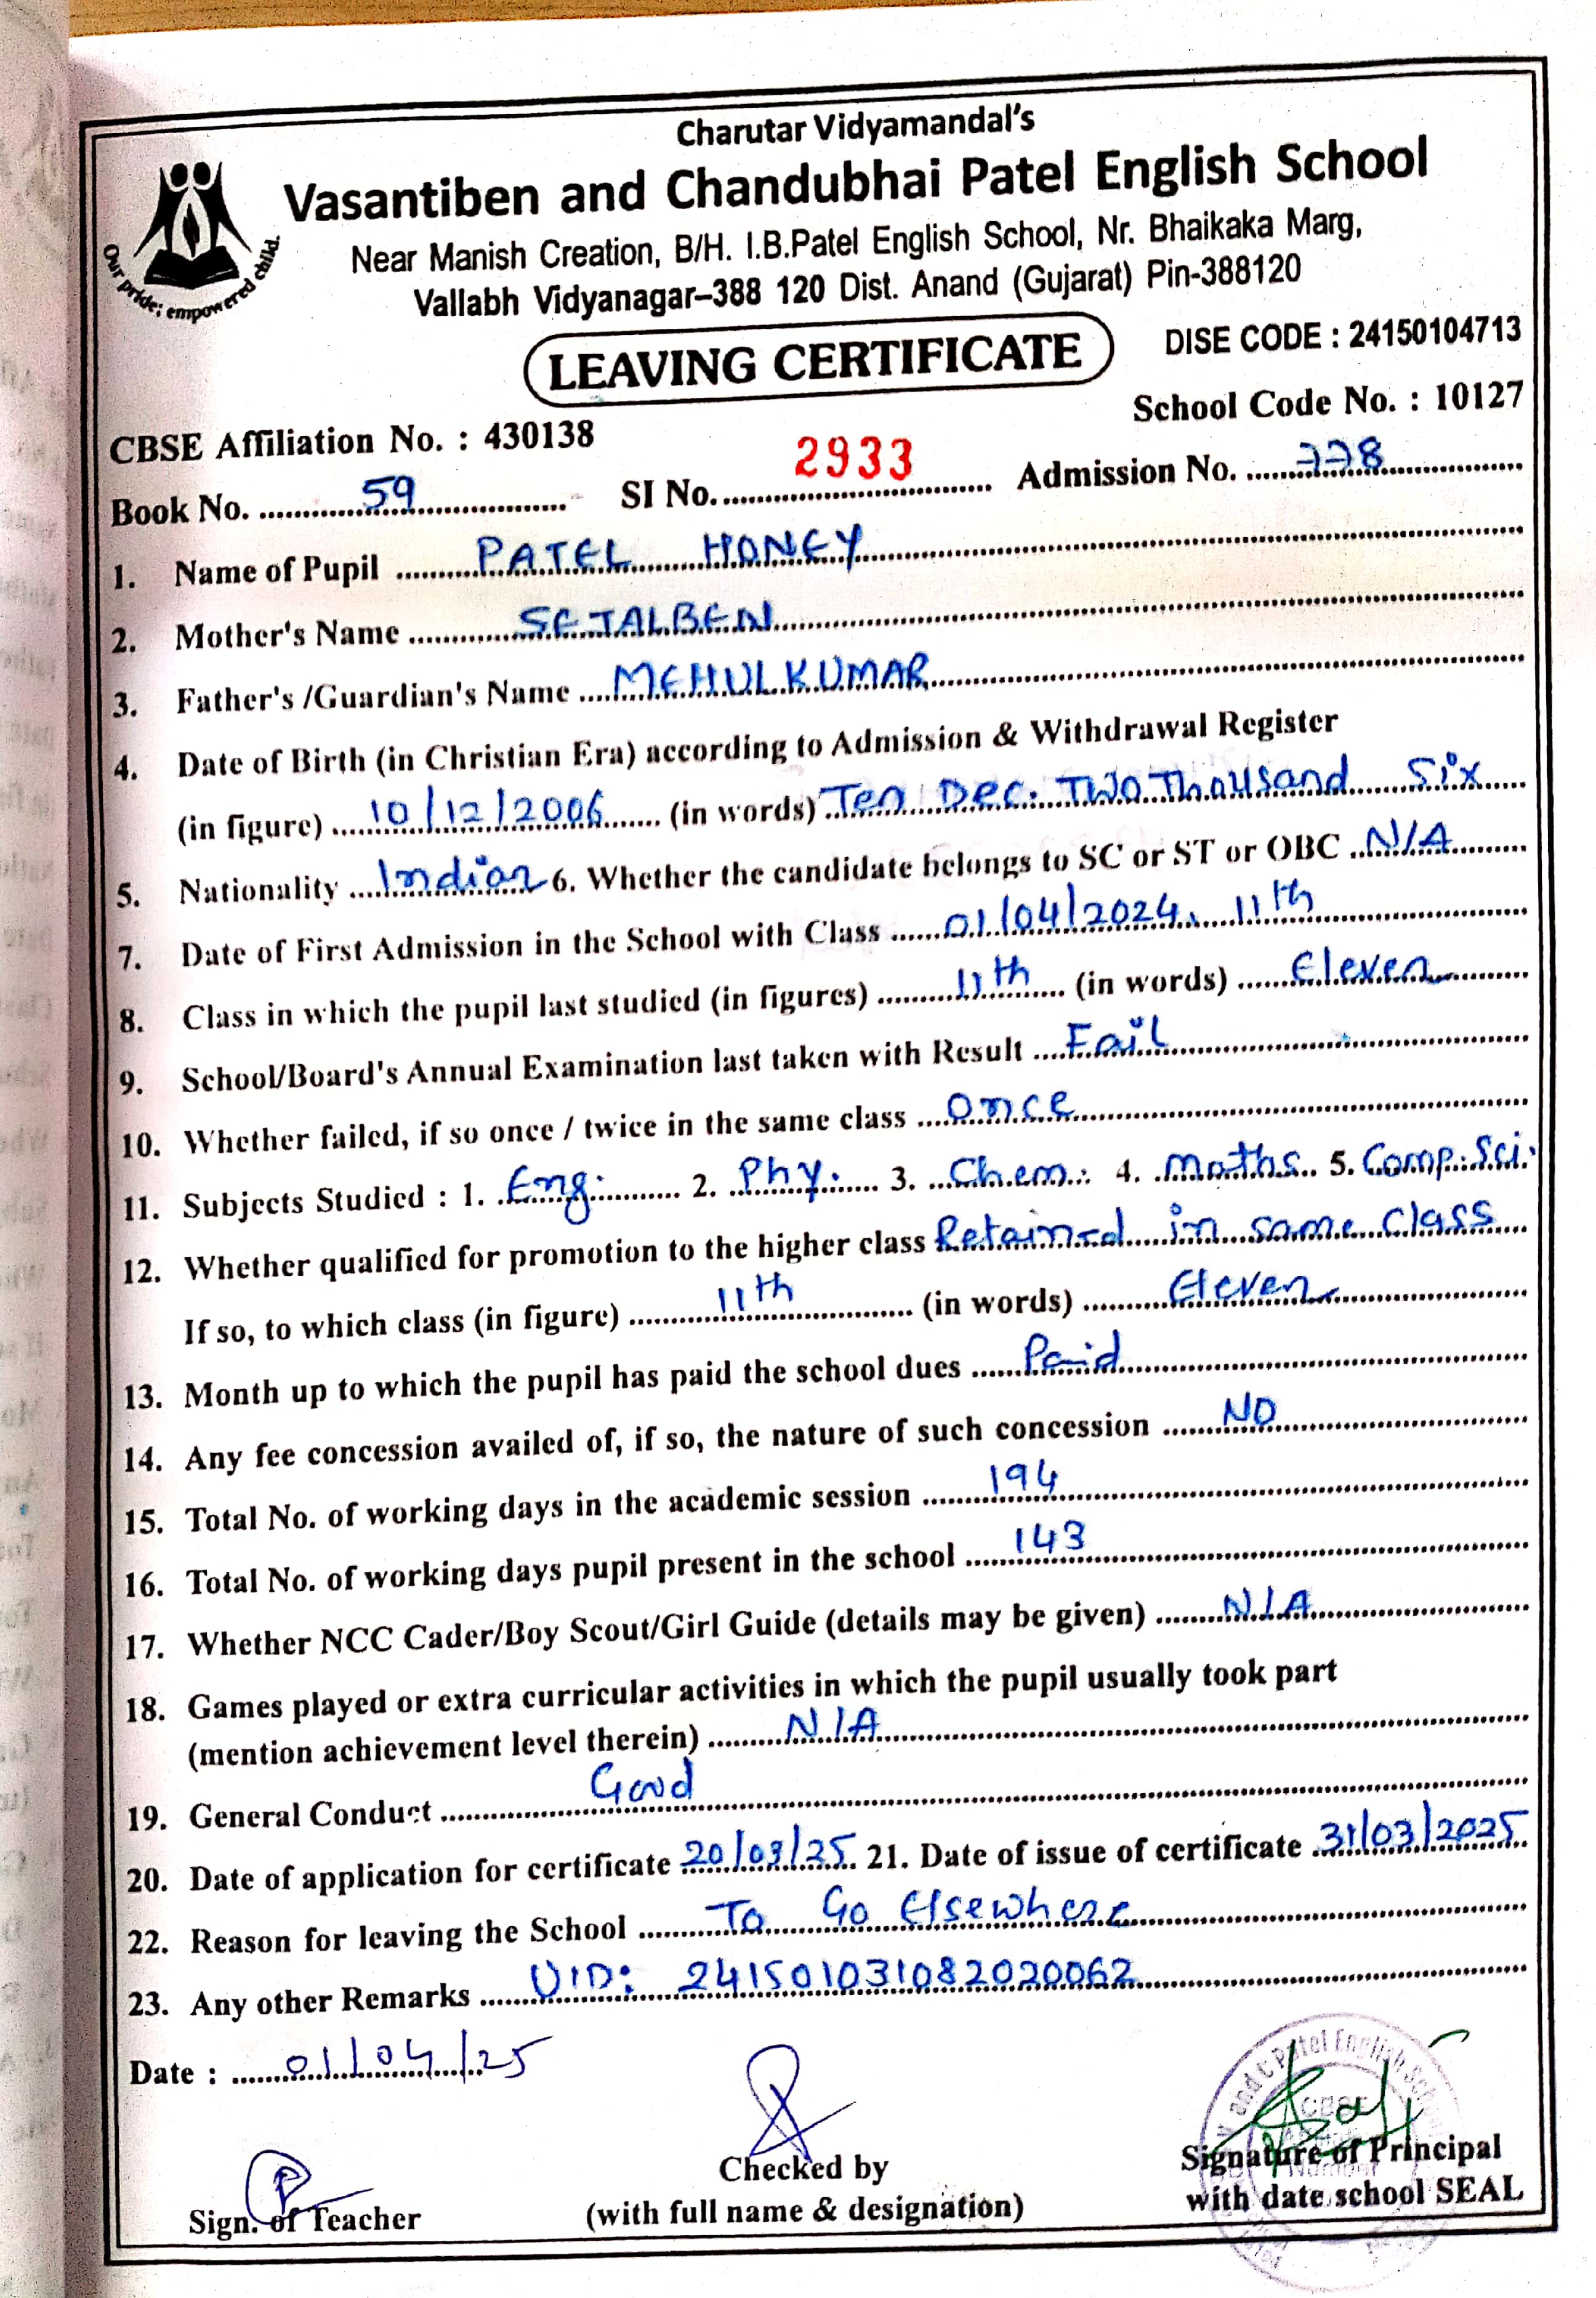 Charutar Vidyamandal's
Vasantiben and Chandubhai Patel English School
Near Manish Creation, B/H. I.B.Patel English School, Nr. Bhaikaka Marg,
Vallabh Vidyanagar–388 120 Dist. Anand (Gujarat) Pin-388120
Our pride; empowered child.
LEAVING CERTIFICATE
DISE CODE : 24150104713
CBSE Affiliation No. : 430138 School Code No. : 10127
Book No. 59 SI No. 2933 Admission No. 778
1. Name of Pupil PATEL HONEY
2. Mother's Name SEJALBEN
3. Father's /Guardian's Name MEHULKUMAR
4. Date of Birth (in Christian Era) according to Admission & Withdrawal Register
(in figure) 10/12/2006 (in words) Ten Dec. Two Thousand Six
5. Nationality Indian 6. Whether the candidate belongs to SC or ST or OBC N/A
7. Date of First Admission in the School with Class 01/04/2024, 11th
8. Class in which the pupil last studied (in figures) 11th (in words) Eleven
9. School/Board's Annual Examination last taken with Result Fail
10. Whether failed, if so once / twice in the same class Once
11. Subjects Studied : 1. Eng. 2. Phy. 3. Chem. 4. Maths 5. Comp. Sci.
12. Whether qualified for promotion to the higher class Retained in same class
If so, to which class (in figure) 11th (in words) Eleven
13. Month up to which the pupil has paid the school dues Paid
14. Any fee concession availed of, if so, the nature of such concession NO
15. Total No. of working days in the academic session 194
16. Total No. of working days pupil present in the school 143
17. Whether NCC Cader/Boy Scout/Girl Guide (details may be given) N/A
18. Games played or extra curricular activities in which the pupil usually took part
(mention achievement level therein) N/A
19. General Conduct Good
20. Date of application for certificate 20/03/25 21. Date of issue of certificate 31/03/2025
22. Reason for leaving the School To Go Elsewhere
23. Any other Remarks UID: 241501031082020062
Date : 01/04/25
Sign. of Teacher
Checked by
(with full name & designation)
Signature of Principal
with date school SEAL